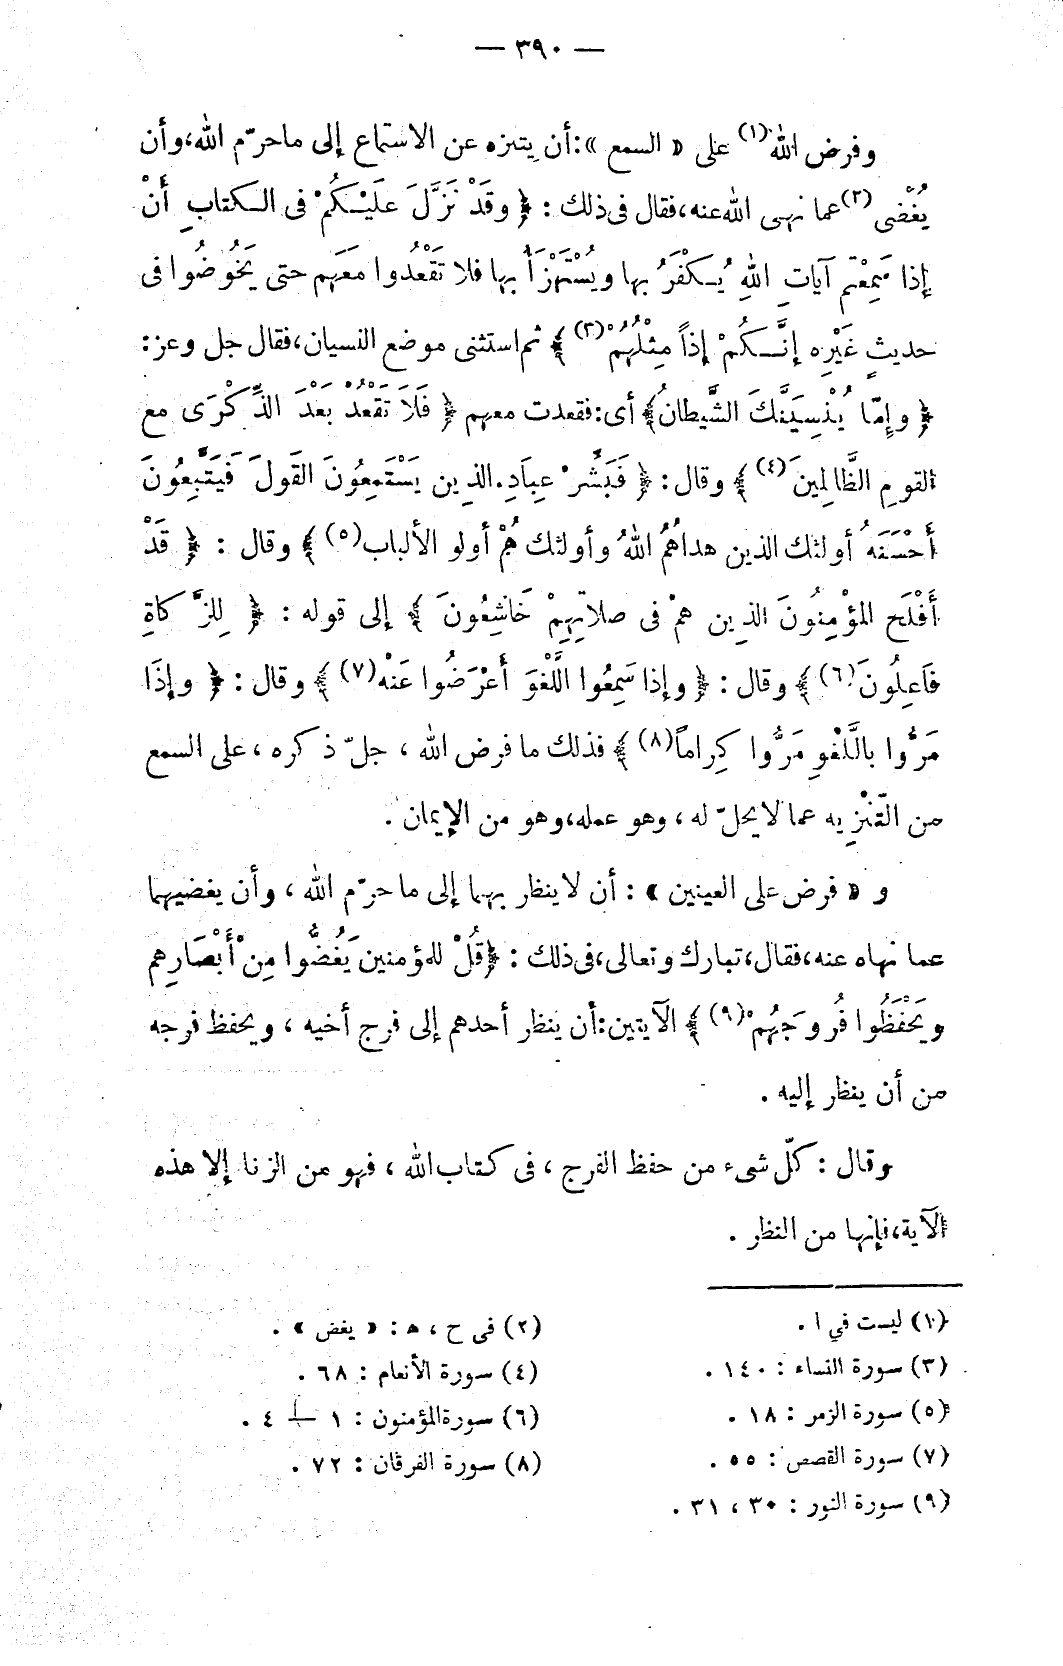 — ٣٩٠ —
وفرض الله(١) على « السمع »: أن يتنزه عن الاستماع إلى ما حرّم الله، وأن
يُغْضى(٢) عما نهى الله عنه، فقال فى ذلك : ﴿ وقَدْ نَزَّلَ عليْكُمْ فى الكتابِ أَنْ
إذا سَمِعْتم آياتِ اللهِ يُكْفَرُ بها ويُسْتَهْزَأُ بها فلا تَقْعُدوا معَهم حتى يَخُوضُوا فى
حديثٍ غَيْرِه إنَّكُمْ إذاً مِثْلُهُمْ(٣) ﴾ ثم استثنى موضع النسيان، فقال جل وعز:
﴿ وإِمّا يُنْسِيَنَّكَ الشَّيطانُ﴾ أى: فقعدت معهم ﴿ فَلَا تَقْعُدْ بعْدَ الذِّكْرَى مع
القومِ الظَّالمِينَ(٤) ﴾ وقال: ﴿ فَبَشِّرْ عِبَادِ. الذين يَسْتَمِعُونَ القَولَ فَيَتَّبِعُونَ
أَحْسَنَهُ أولئك الذين هداهُمُ اللهُ وأولئك هُمْ أولو الألباب(٥) ﴾ وقال : ﴿ قَدْ
أَفْلَح المؤْمِنُونَ الذين همْ فى صلاتِهِمْ خَاشِعُونَ ﴾ إلى قوله : ﴿ لِلزَّكاةِ
فَاعِلُونَ(٦) ﴾ وقال : ﴿ وإذا سَمِعُوا اللَّغْوَ أَعْرَضُوا عَنْه(٧) ﴾ وقال : ﴿ وإذَا
مَرُّوا باللَّغْوِ مَرُّوا كِراماً(٨) ﴾ فذلك ما فرض الله ، جلّ ذكره ، على السمع
من التَّنْزِيه عما لا يحلّ له ، وهو عمله، وهو من الإيمان .
و « فرض على العينين » : أن لا ينظر بهما إلى ما حرّم الله ، وأن يغضيهما
عما نهاه عنه، فقال، تبارك وتعالى، فى ذلك : ﴿قُلْ للمؤمنين يَغُضُّوا مِنْ أَبْصَارِهم
ويَحْفَظُوا فُروجَهُمْ(٩) ﴾ الآيتين: أن ينظر أحدهم إلى فرج أخيه ، ويحفظ فرجه
من أن ينظر إليه .
وقال : كلّ شىء من حفظ الفرج ، فى كتاب الله ، فهو من الزنا إلا هذه
الآية، فإنها من النظر .
(١) ليست في ا .
(٢) فى ح ، ه : « يغض » .
(٣) سورة النساء : ١٤٠ .
(٤) سورة الأنعام : ٦٨ .
(٥) سورة الزمر : ١٨ .
(٦) سورة المؤمنون : ١ — ٤ .
(٧) سورة القصص : ٥٥ .
(٨) سورة الفرقان : ٧٢ .
(٩) سورة النور : ٣٠ ، ٣١ .